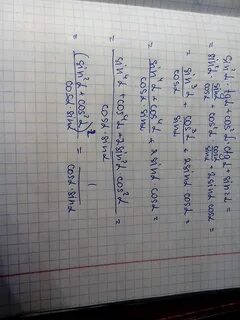 sin²α·tgα + cos²α·ctgα + sin2α =
= sin²α · sinα/cosα + cos²α · cosα/sinα + 2 sinα cosα =
= sin³α/cosα + cos³α/sinα + 2 sinα·cosα =
= (sin⁴α + cos⁴α)/(cosα sinα) + 2 sinα cosα =
= (sin⁴α + cos⁴α + 2 sin²α cos²α)/(cosα·sinα) =
= (sin²α + cos²α)²/(cosα·sinα) = 1/(cosα·sinα)